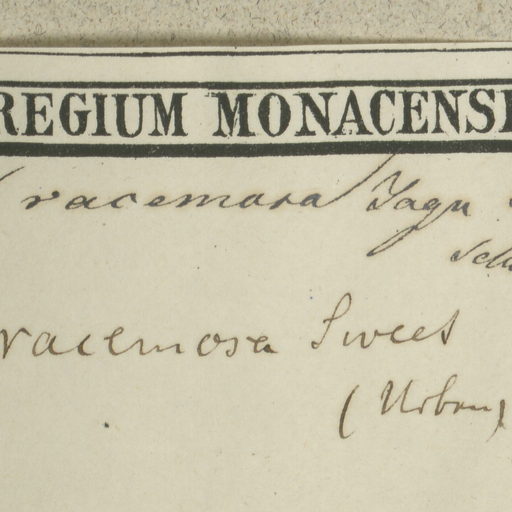 REGIUM MONACENSE
racemosa
racemosa Sweet
(Urban)